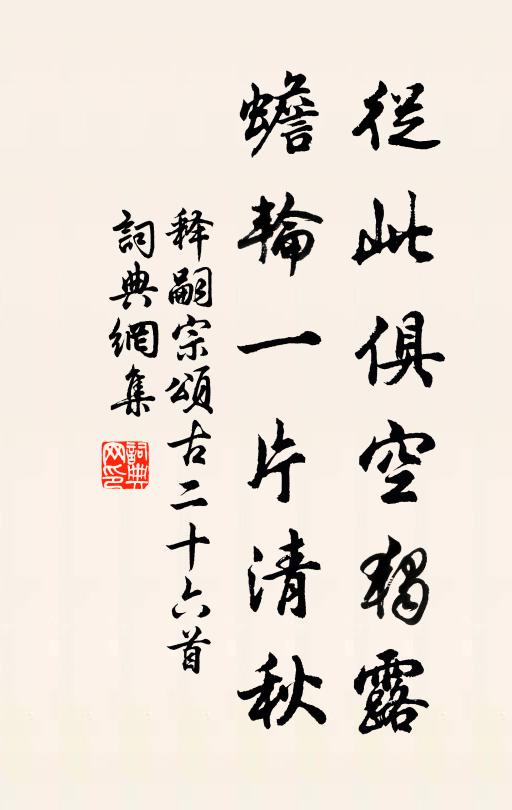 從此俱空獨露
蟾輪一片清秋
释嗣宗頌古二十六首
詞典網集
詞典網印